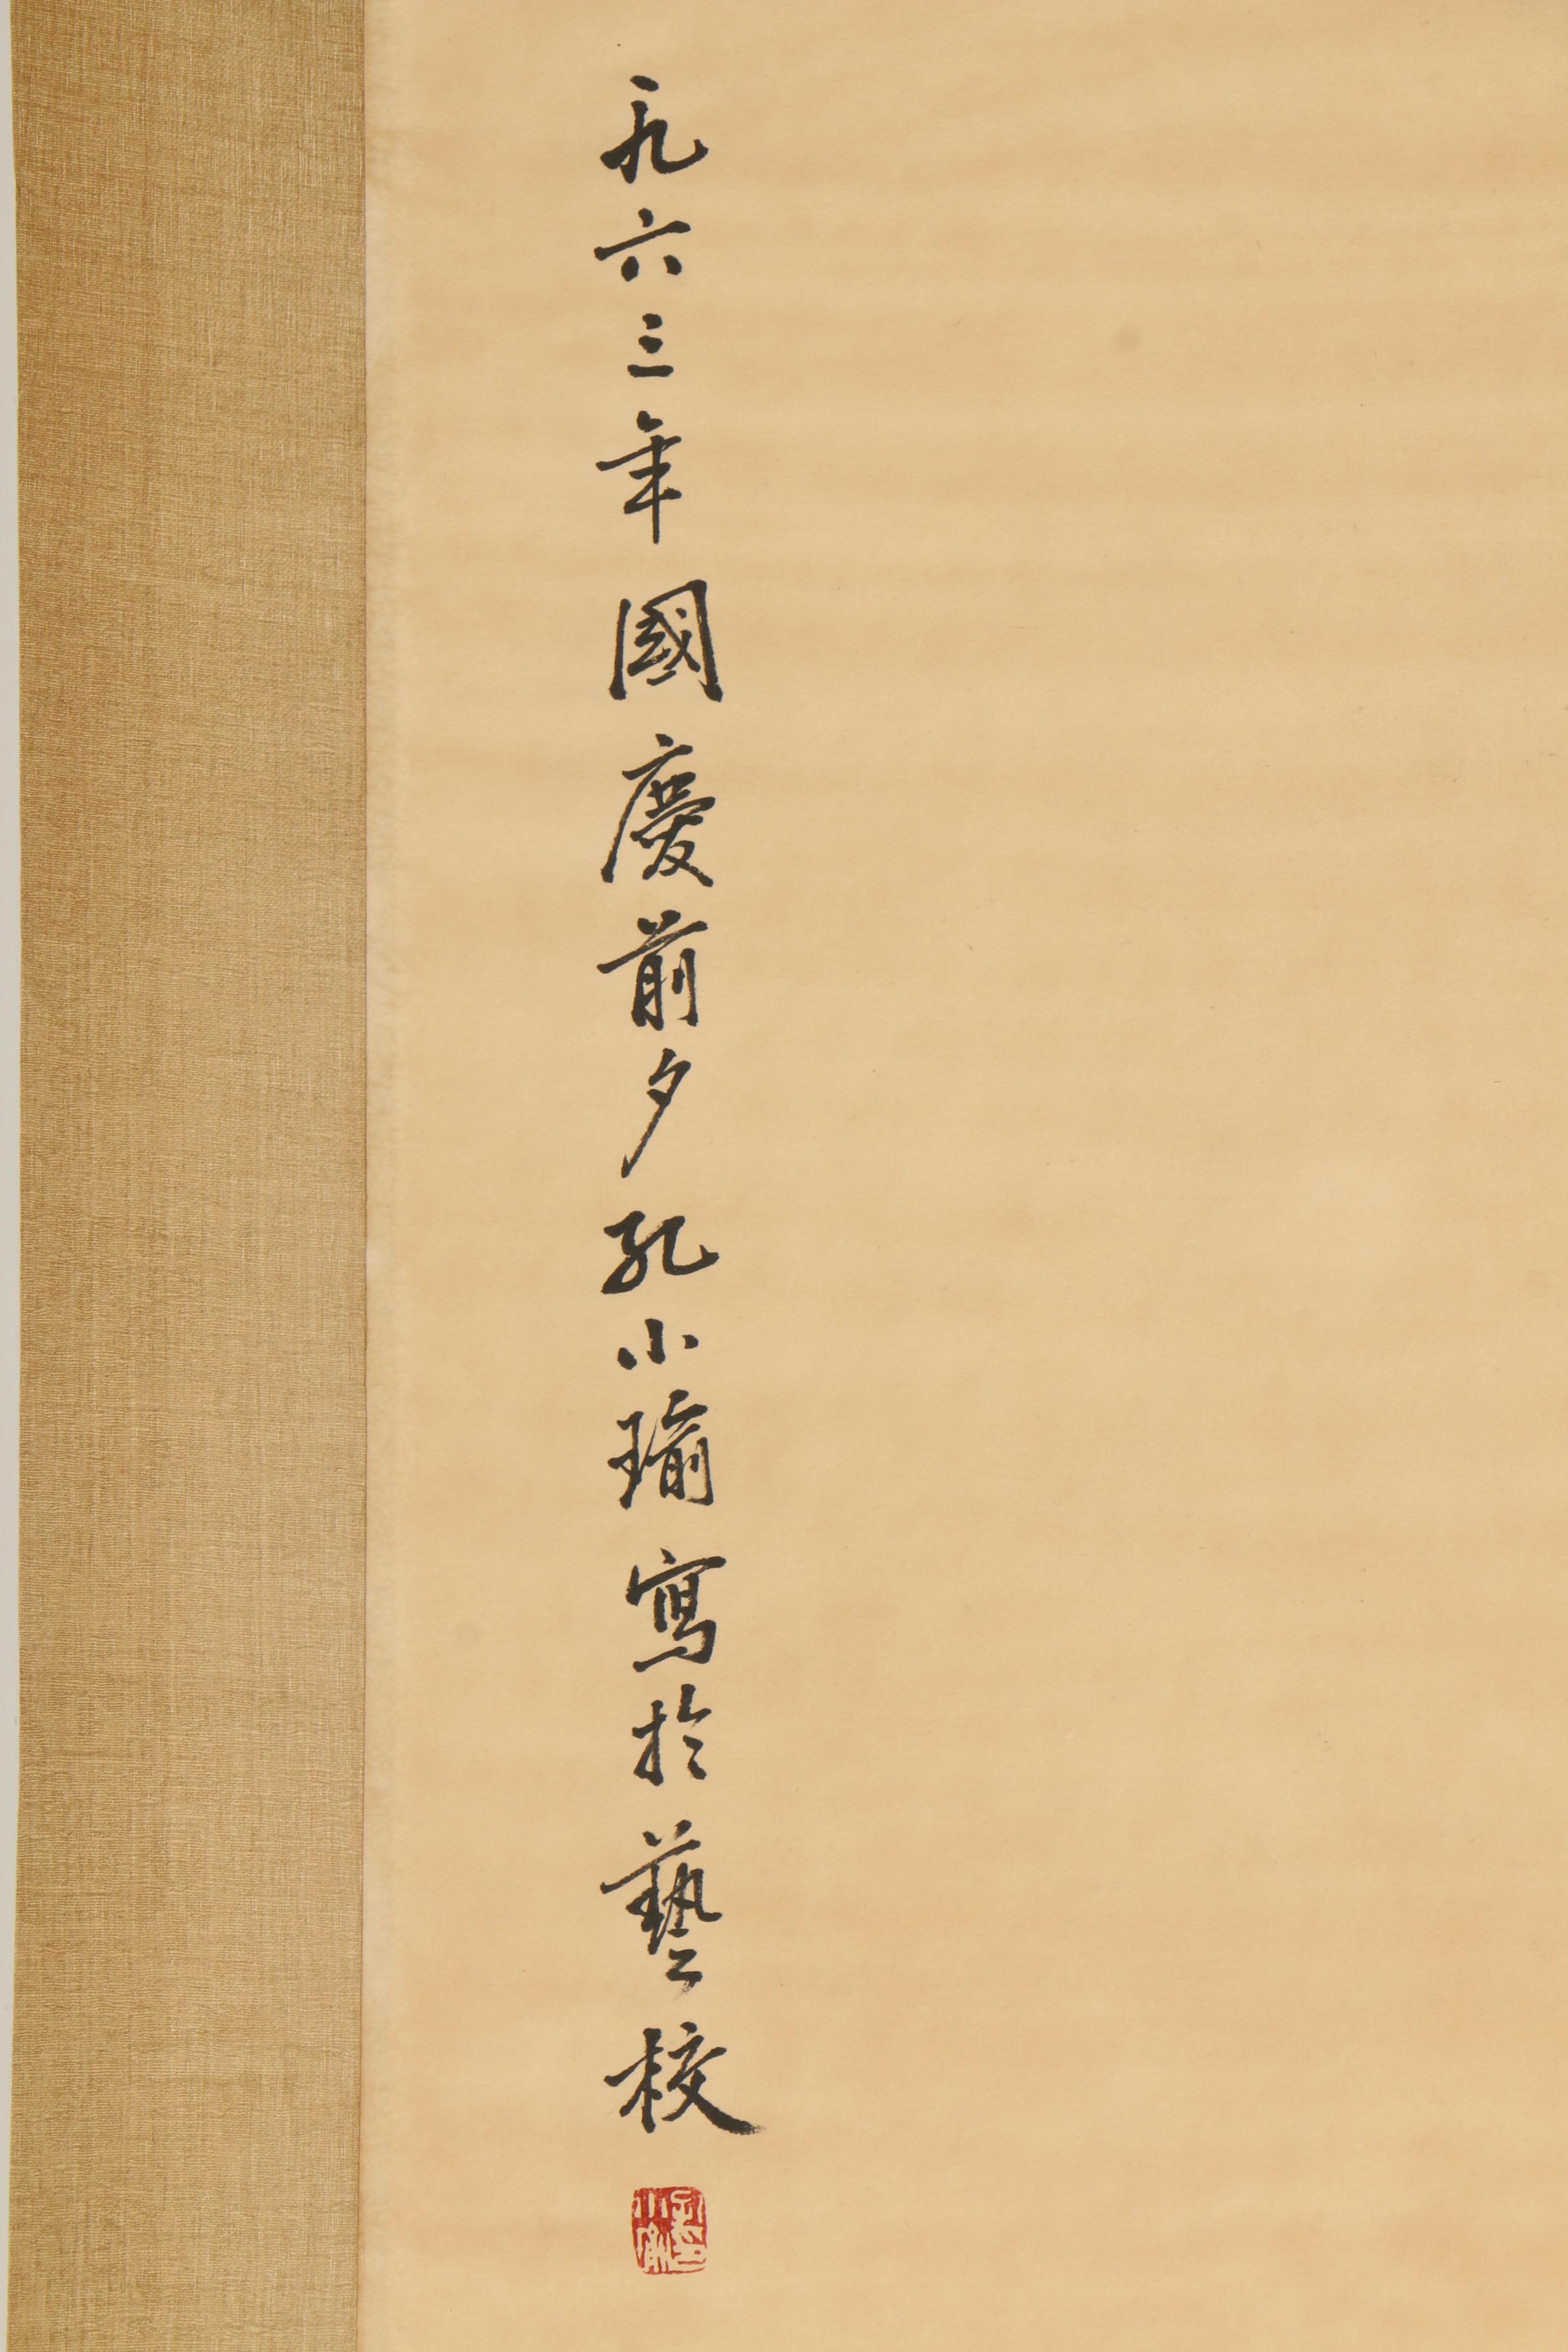 一九六三年國慶前夕孔小瑜寫於藝校